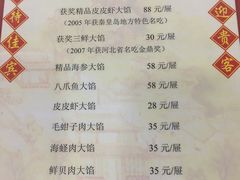 获奖精品皮皮虾大馅 88 元/屉
(2005 年获秦皇岛地方特色名吃)
获奖三鲜大馅 30 元/屉
(2007 年获河北省名吃金鼎奖)
精品海参大馅 58 元/屉
八爪鱼大馅 58 元/屉
皮皮虾大馅 28 元/屉
毛蚶子肉大馅 35 元/屉
海蛏肉大馅 35 元/屉
鲜贝肉大馅 35 元/屉
待佳宾
迎贵客